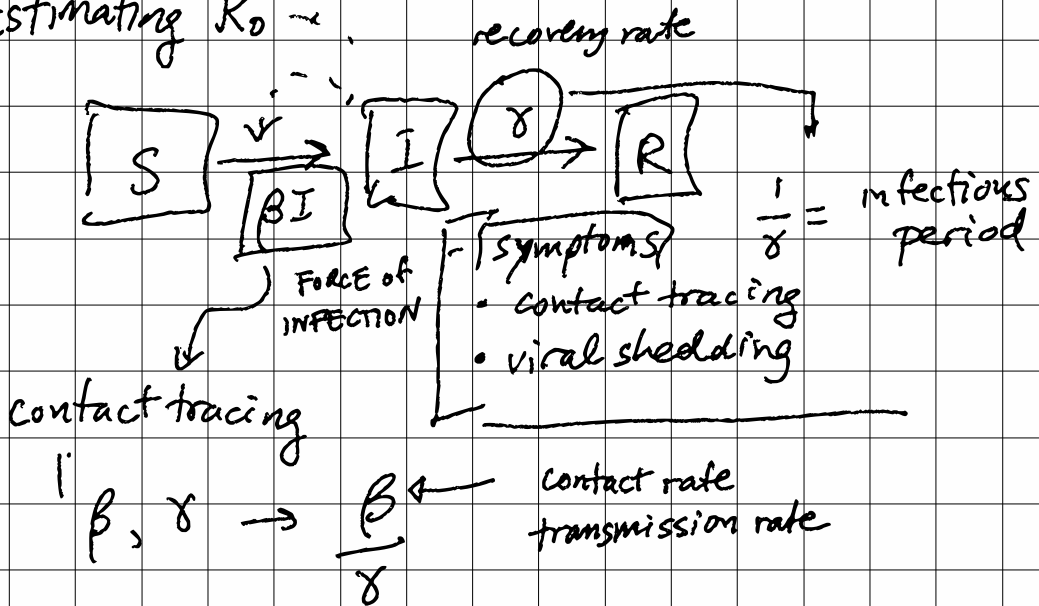 estimating R₀
recovery rate
S
βI
I
γ
R
FORCE of
INFECTION
1/γ = infectious
period
symptoms
• contact tracing
• viral shedding
contact tracing
β, γ → β/γ
contact rate
transmission rate